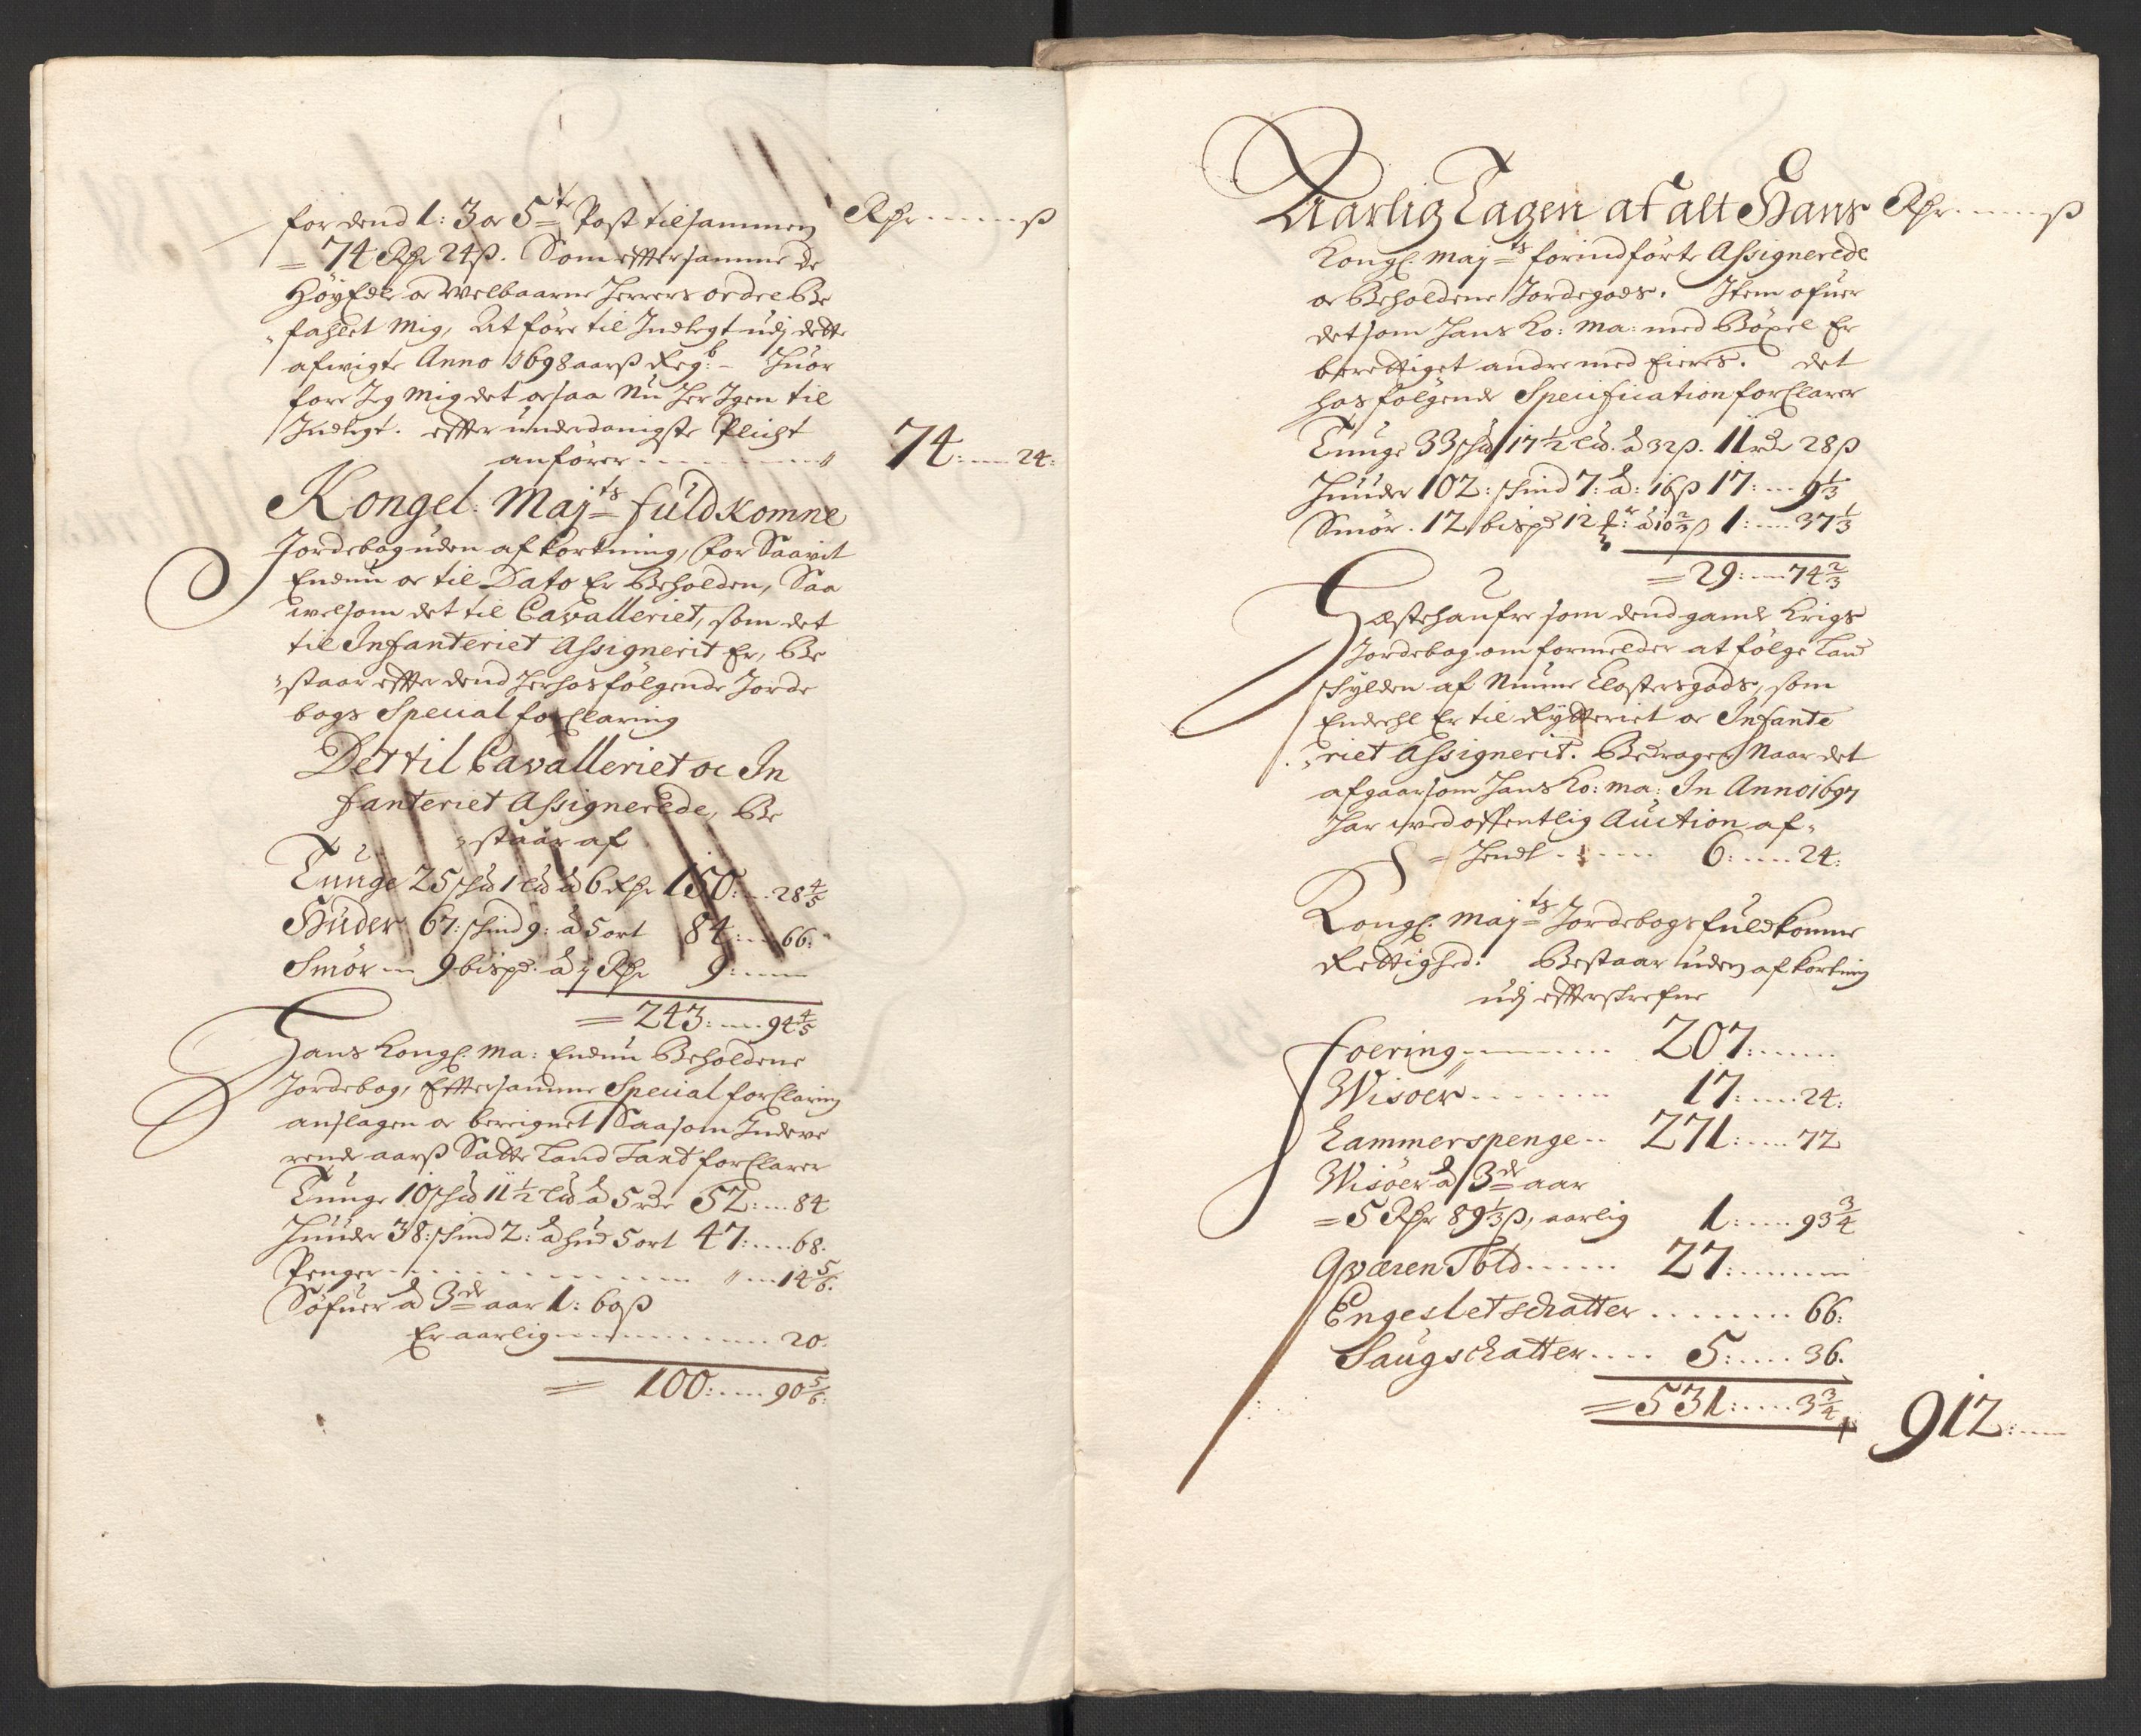 for dend 1: 3 oc 5te Post tilsammen Rdr ß
= 74 Rdr 24 ß. Som effter samme de
Höyedle oc Welbaarne Herrers ordre Be
fahlet Mig, At före til Indtegt udj dette
afwigte Anno 1698 aarß Regb: – Huor
fore Jeg Mig det ocsaa Nu Her Igen til
Indtegt. effter underdanigste Plicht
anfører 74: 24:
Kongel: Majts fuldkomne
Jordebog uden afkortning, for Saavit
Endnu oc til Dato Er Beholden, Saa
welsom det til Cavalleriet, som det
til Infanteriet Assignerit Er, Be
staar effter dend Herhos følgende Jorde
bogs Special forklaring
Det til Cavalleriet oc In
fanteriet Assignerede, Be
staar af
Tunge 25 schd 1 Lid â 6 Rdr 150: 28 4/5
Huder 67: schind 9: â 5 ort 84: 66:
Smör 9 bispd. â 1 Rdr 9:
= 243: 94 4/5
Hans Kongl: Ma: Endnu Beholdene
Jordebog, Effter samme Special forklaring
anslagen oc beregnet Saasom Indeve
rende aarß Satte Land Taxt forklarer
Tunge 10 schd 11 1/2 Lid â 5 rdr 52: 84
Huuder 38: schind 2: â hud 5 ort 47: 68.
Penger " 14 5/6.
Söfuer â 3de aar 1: 60 ß
Er aarlig 20.
= 100: 90 5/6:
Aarlig Tagen af alt Hans Rdr ß
Kongl: Majts forindførte Assignerede
oc Beholdene Jordegods. Item ofuer
det som Hans Ko: Ma: med Böxel Er
berettiget andre med Eieres. Det
hos følgende Specification forklarer
Tunge 33 schd 17 1/2 Lid. â 32 ß. 11 rdr 28 ß
Huuder 102: schind 7: â: 16 ß 17: 9 1/3
Smör. 12 bispd 12 â 10 2/3 ß 1: 37 1/3
= 29: 74 2/3
Hæstehaufre som dend gamle Krigs
Jordebog om formelder at følge Land
schylden af Nunne Closters gods, som
Endeehl Er til Rytteriet oc Infante
riet Assignerit. Bedrager Naar det
afgaar som Hans Ko: Ma: In Anno 1697
Har ved offentlig Auction af
= hendt 6: 24:
Kongl: Majts Jordebogs fuldkomne
Rettighed. Bestaar uden afkortning
udj effterskrefne
Foering 207:
Wisoer 17: 24:
Lammerspenge 271: 72
Wisöer â 3de aar
= 5 Rdr 89 1/3 ß, aarlig 1: 93 3/4
Qværen Told 27:
Engesletschatter 66:
Saugschatter 5: 36.
= 531: 3 3/4 912: